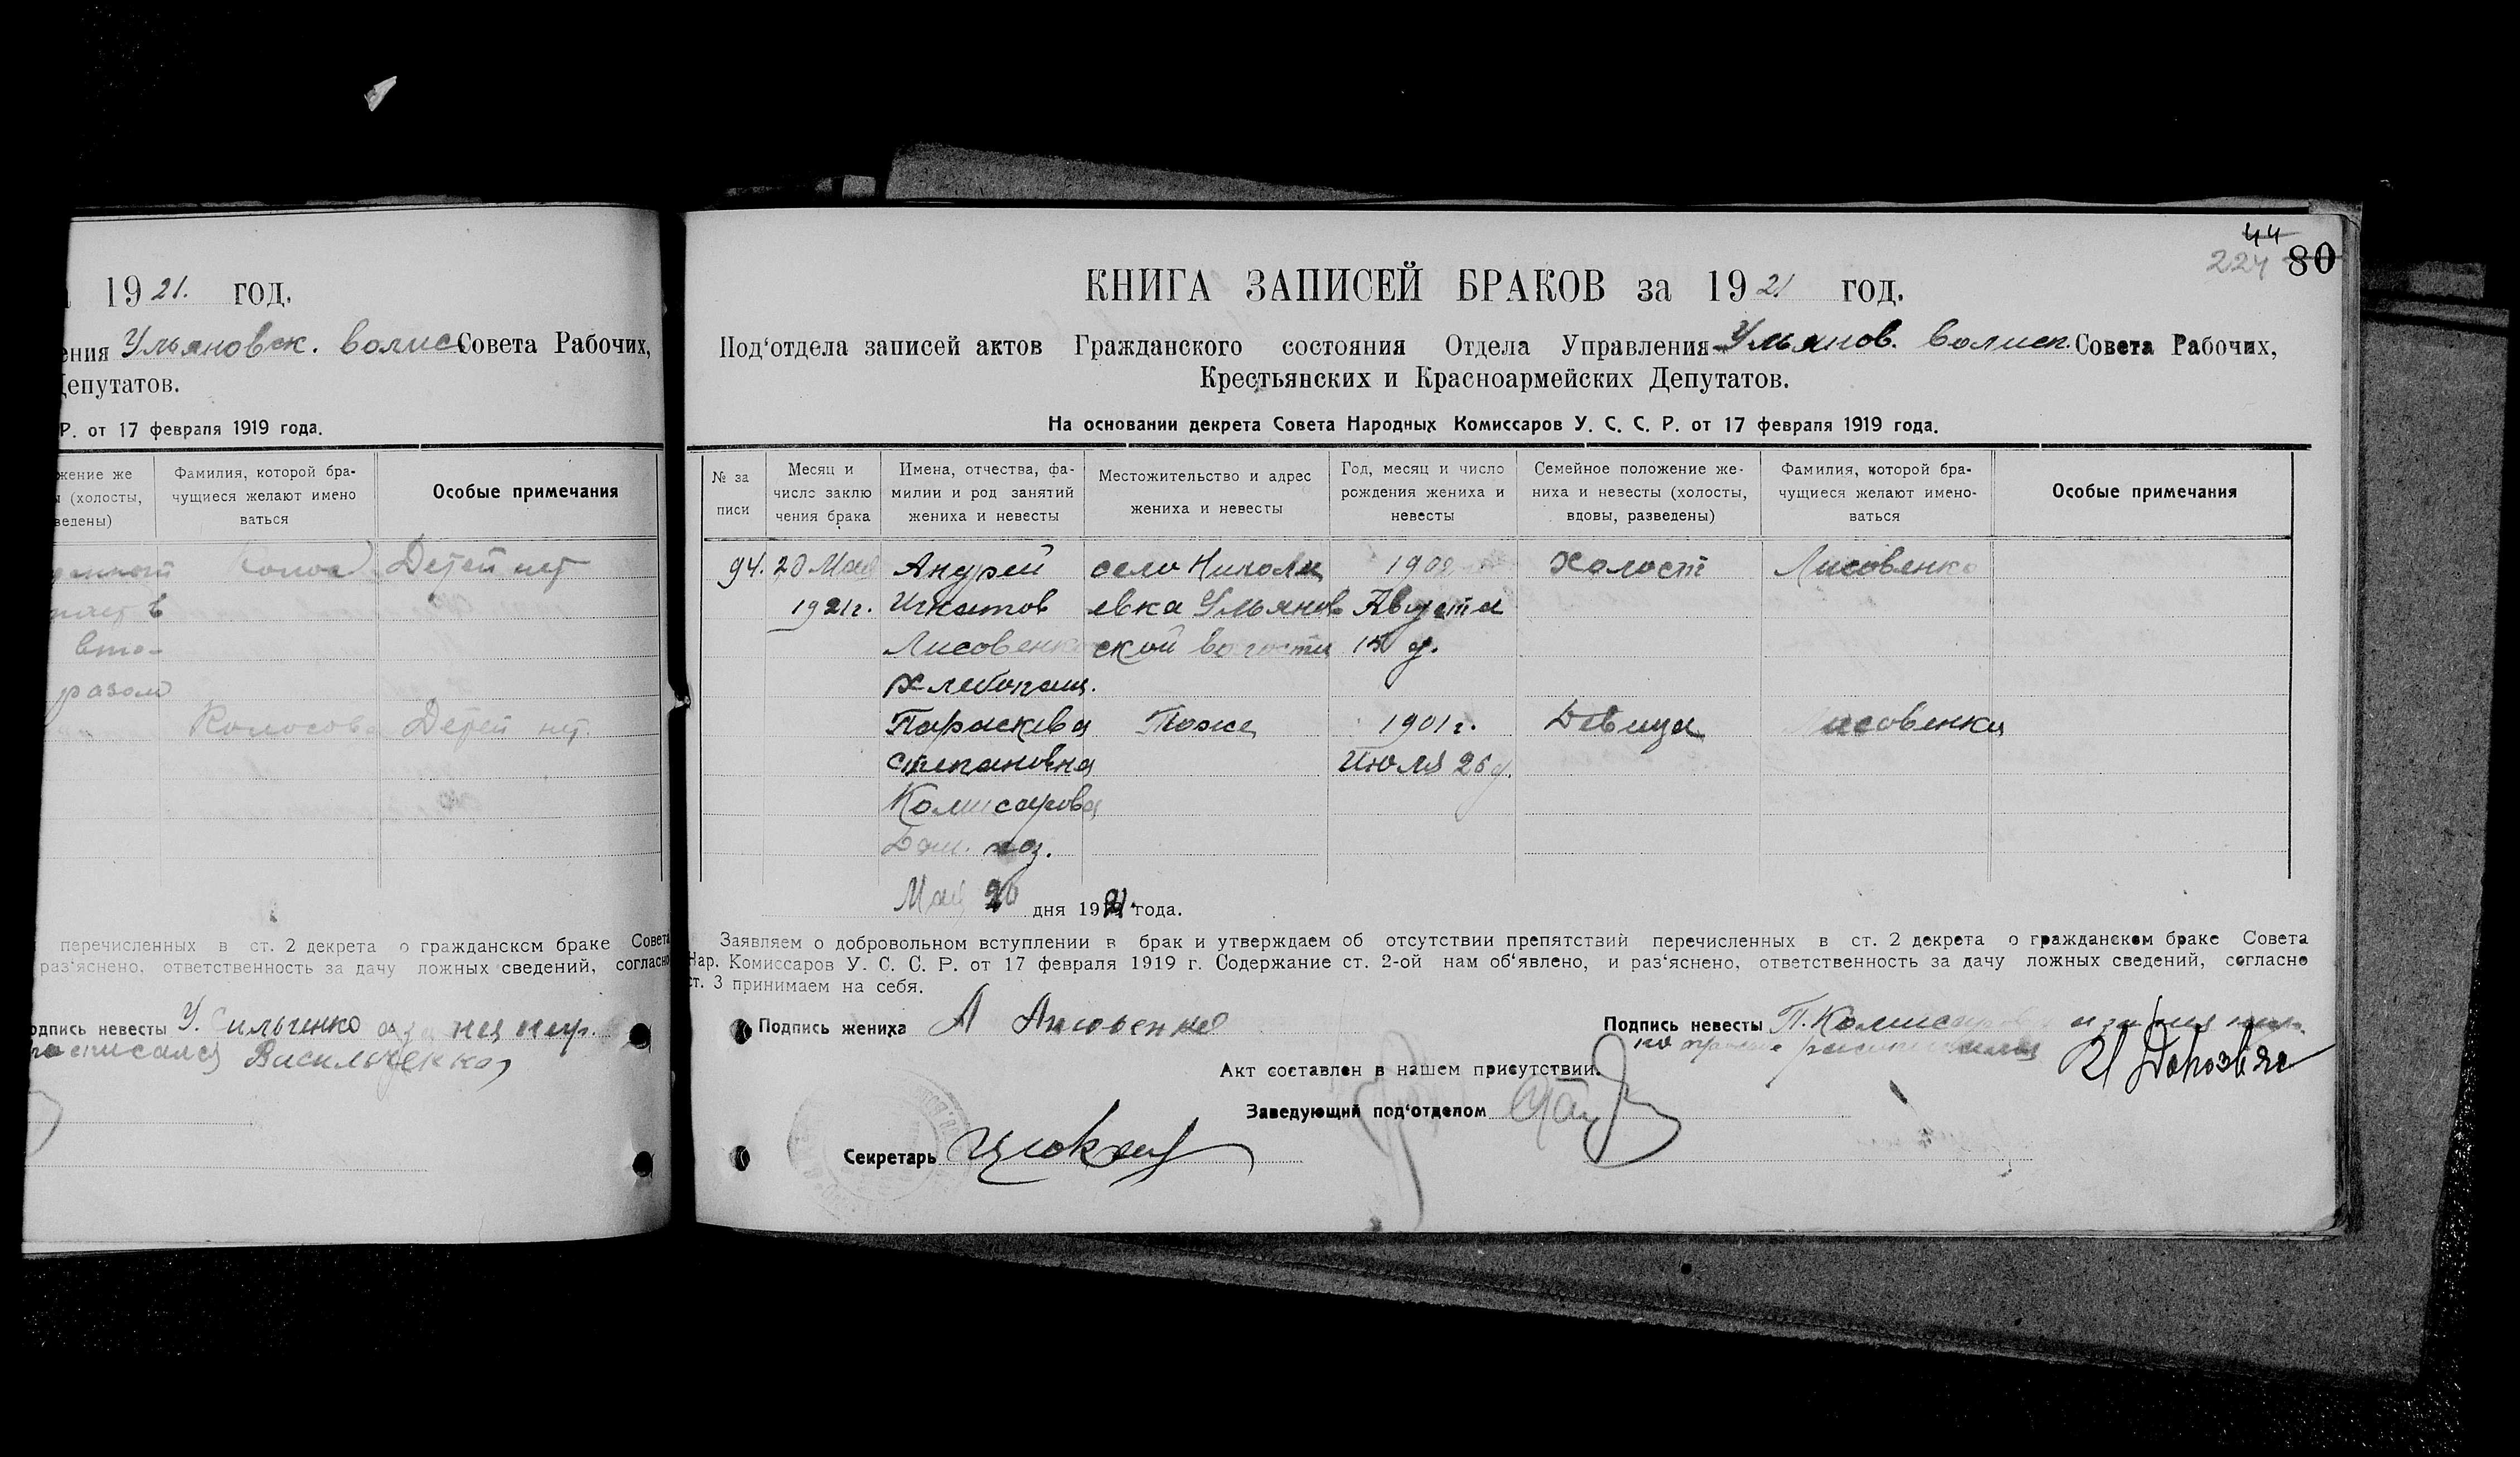 1921. год.
ения Ульяновск. волис Совета Рабочих,
Депутатов.
Р. от 17 февраля 1919 года.
жение же
(холосты,
ведены)
Фамилия, которой бра-
чущиеся желают имено
ваться
Особые примечания
Детей нет
вто-
разом
Колосова Детей нет.
перечисленных в ст. 2 декрета о гражданском браке Совета
раз‘яснено, ответственность за дачу ложных сведений, согласно
одпись невесты У. Сильченко
Васильченко
44
224 80
КНИГА ЗАПИСЕЙ БРАКОВ за 1921 год.
Под‘отдела записей актов Гражданского состояния Отдела Управления Ульянов. волисп. Совета Рабочих,
Крестьянских и Красноармейских Депутатов.
На основании декрета Совета Народных Комиссаров У. С. С. Р. от 17 февраля 1919 года.
№ за
писи
Месяц и
число заклю
чения брака
Имена, отчества, фа-
милии и род занятий
жениха и невесты
Местожительство и адрес
жениха и невесты
Год, месяц и число
рождения жениха и
невесты
Семейное положение же-
ниха и невесты (холосты,
вдовы, разведены)
Фамилия, которой бра-
чущиеся желают имено-
ваться
Особые примечания
94. 20 Мая Андрей село Никола 1902 Холост Лисовенко
1921г. Игнатов евка Ульянов Августа
Лисовенко ской волости 15 д.
Хлебопаш.
Параскева Тоже 1901 г. Девица Лисовенко
Степановна Июля 26 д.
Комисарова
Дом. хоз.
Мая 20 дня 1921 года.
Заявляем о добровольном вступлении в брак и утверждаем об отсутствии препятствий перечисленных в ст. 2 декрета о гражданском браке Совета
Нар. Комиссаров У. С. С. Р. от 17 февраля 1919 г. Содержание ст. 2-ой нам об‘явлено, и раз‘яснено, ответственность за дачу ложных сведений, согласно
ст. 3 принимаем на себя.
Подпись жениха А Лисовенко
Подпись невесты П. Комисарова
Акт составлен в нашем присутствии.
Заведующий под‘отделом
Секретарь